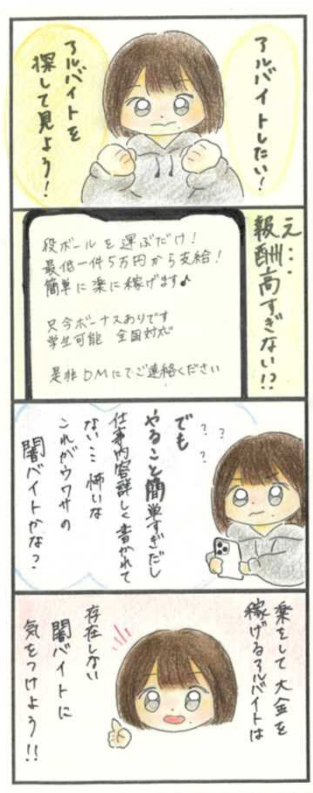 アルバイトしたい!
アルバイトを
探して見よう!
え…
報酬高すぎない!?
段ボールを運ぶだけ!
最低一件5万円から支給!
簡単に楽に稼げます♪
只今ボーナスありです
学生可能 全国対応
是非DMにてご連絡ください
? ? ?
でも
やること簡単すぎだし
仕事内容詳しく書かれて
ない… 怖いな
これがウワサの
闇バイトかな?
楽をして大金を
稼げるアルバイトは
存在しない
闇バイトに
気をつけよう!!